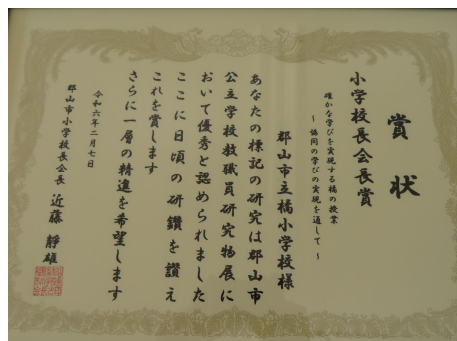 賞状
小学校長会長賞
確かな学びを実現する橘の授業
～ 協同の学びの実現を通して ～
郡山市立橘小学校様
あなたの標記の研究は郡山市
公立学校教職員研究物展に
おいて優秀と認められました
ここに日頃の研鑽を讃え
これを賞します
さらに一層の精進を希望します
令和六年二月七日
郡山市小学校長会長 近藤 靜雄